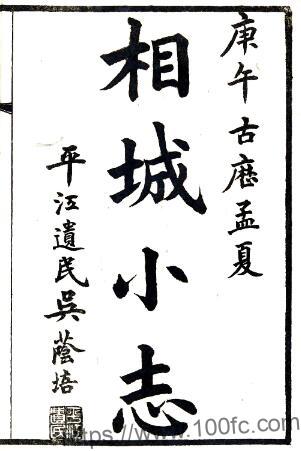 庚午古歷孟夏
相城小志
平江遺民吳蔭培
https://www.100fc.com